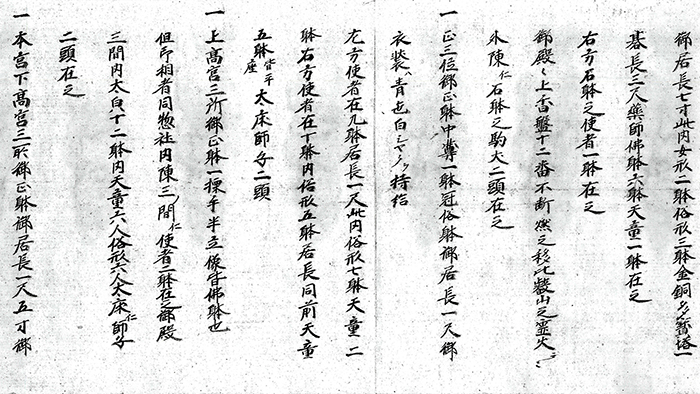 御居長七寸此内女形二躰俗形三躰金銅多寶塔一
基長三尺藥師佛躰六躰天童一躰在之
右方石躰之使者一躰在之
御殿ゝ上香盤十二番不断燃之移此山之霊火
外陳仁石躰之駒犬二頭在之
一 正三位御正躰中尊一躰冠俗躰御居長一尺御
衣裝ハ青色白シヤクヲ持給
左方使者在九躰居長一尺此内俗形七躰天童二
躰右方使者在丁躰内俗形五躰居長同前天童
五躰皆平座太床師子二頭
一 上高宮三所御正躰一手半立像皆佛躰也
但形相者同惣社内陳三間仁使者二躰在之御殿
三間内太自十二躰内天童六人俗形六人大床仁師子
二頭在之
一 本宮下高宮三所御正躰御居長一尺五寸御